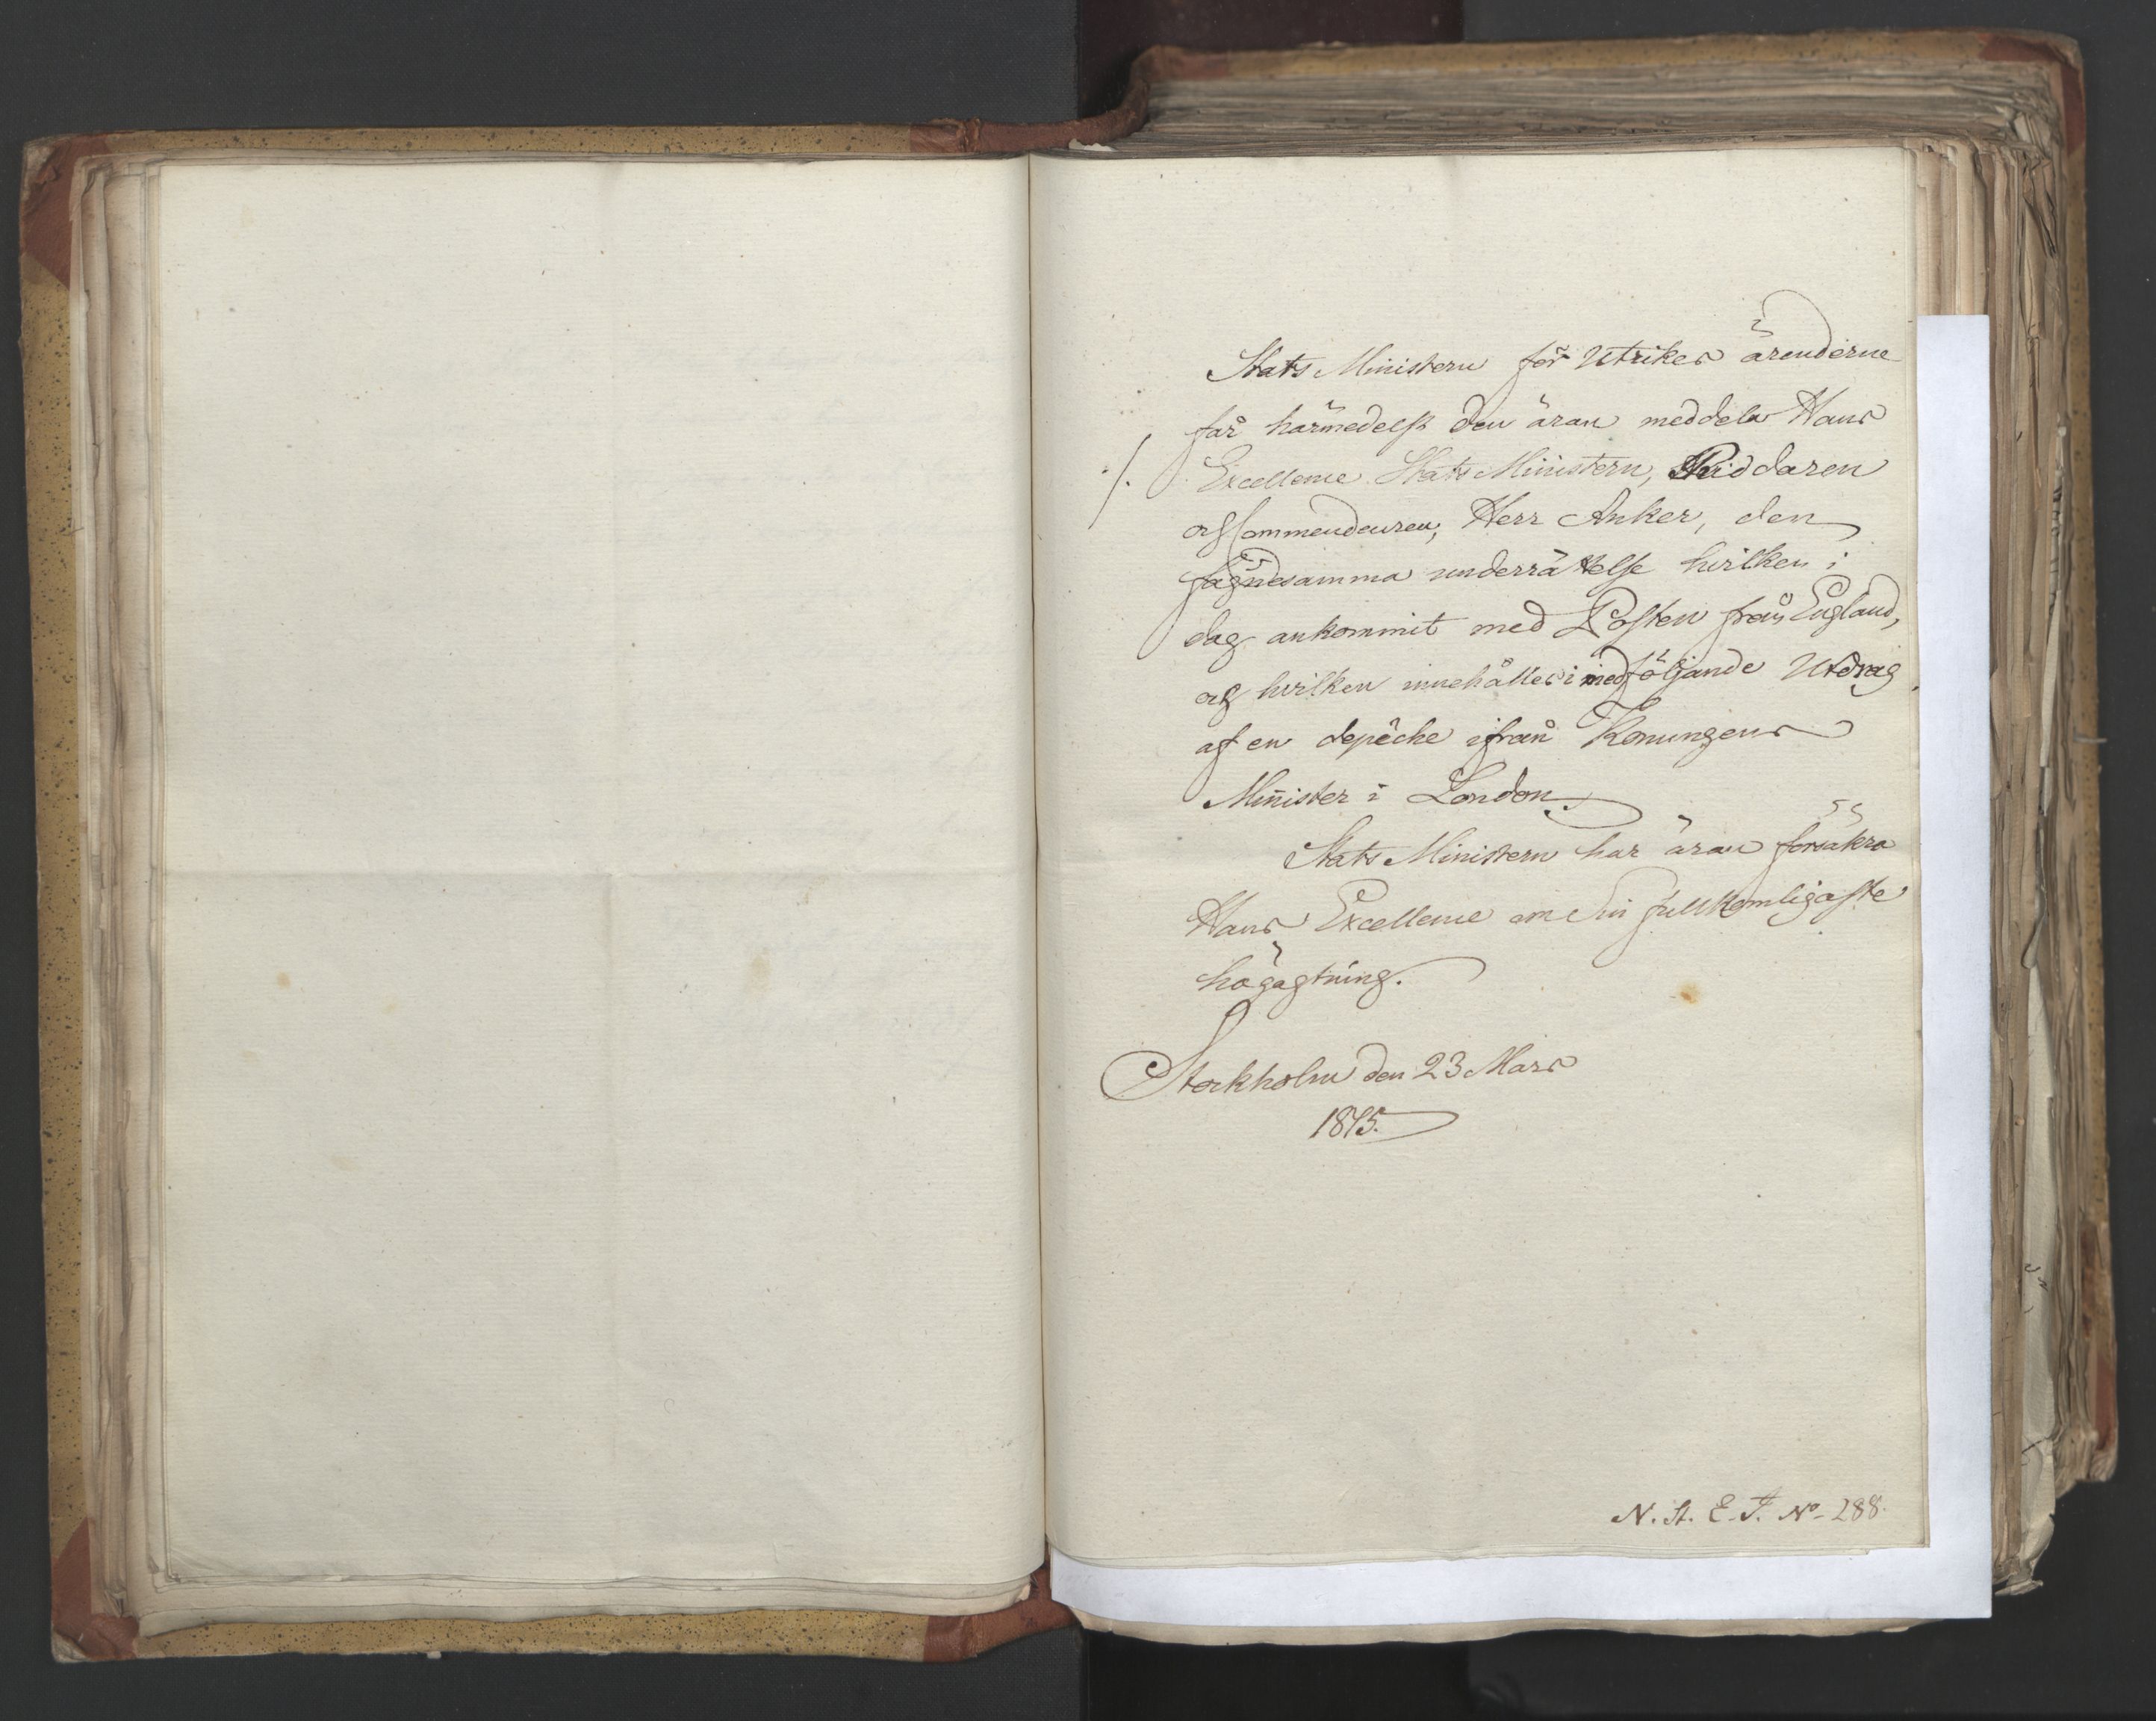 Stats Ministern för Utrikes ärenderne
får härmedelst den äran meddela Hans
./. Excellence Stats Ministern, Riddaren
och Commendeuren, Herr Anker, den
fägnesamma underrättelse hvilken i
dag ankommit med Posten från England,
och hvilken innehålles i medföljande Utdrag
af en depêche ifrån Konungens
Minister i London.
Stats Ministern har äran försäkra
Hans Excellence om Sin fullkomligaste
högagtning.
Stockholm den 23 Mars
1815.
N. St. E. T. No. 288.